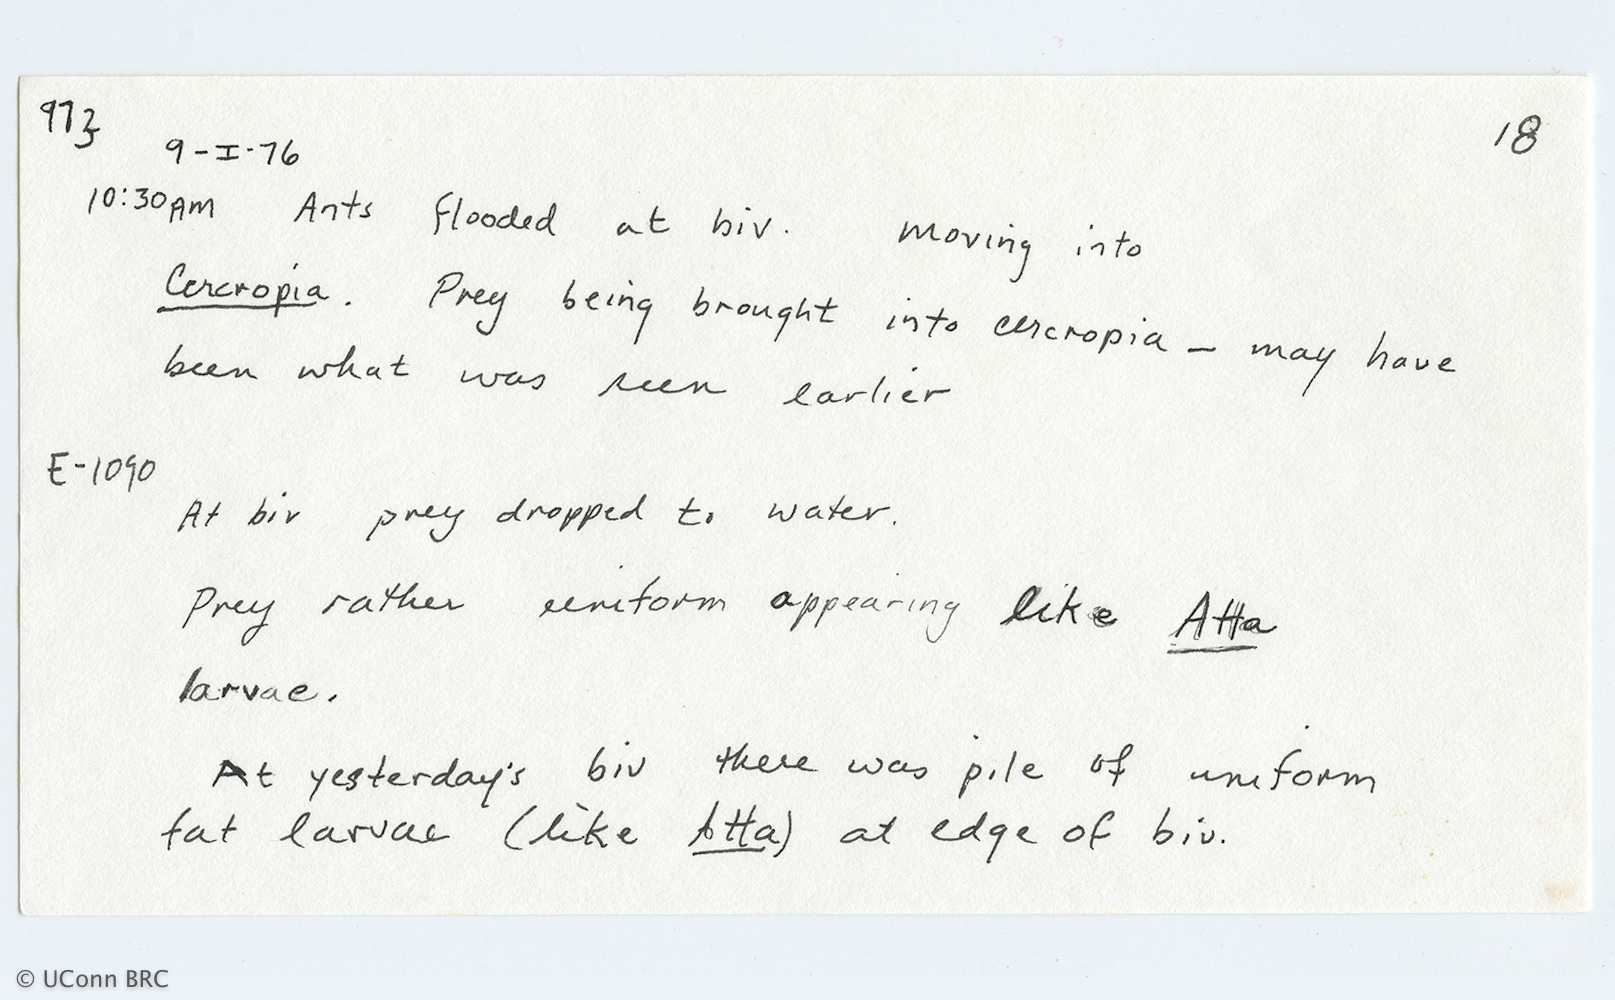 973
18
9-I-76
10:30AM Ants flooded at biv. Moving into
Cercropia. Prey being brought into cercropia - may have
been what was seen earlier
E-1090
At biv prey dropped to water.
Prey rather uniform appearing like Atta
larvae.
At yesterday's biv there was pile of uniform
fat larvae (like Atta) at edge of biv.
© UConn BRC